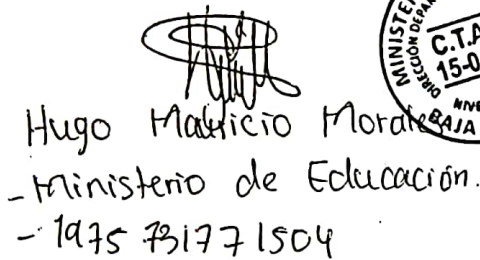 Hugo Mauricio Morales
- Ministerio de Educación.
- 1975 731771504
MINISTE
DIRECCIÓN DEPA
C.T.A
15-0
NIVE
BAJA